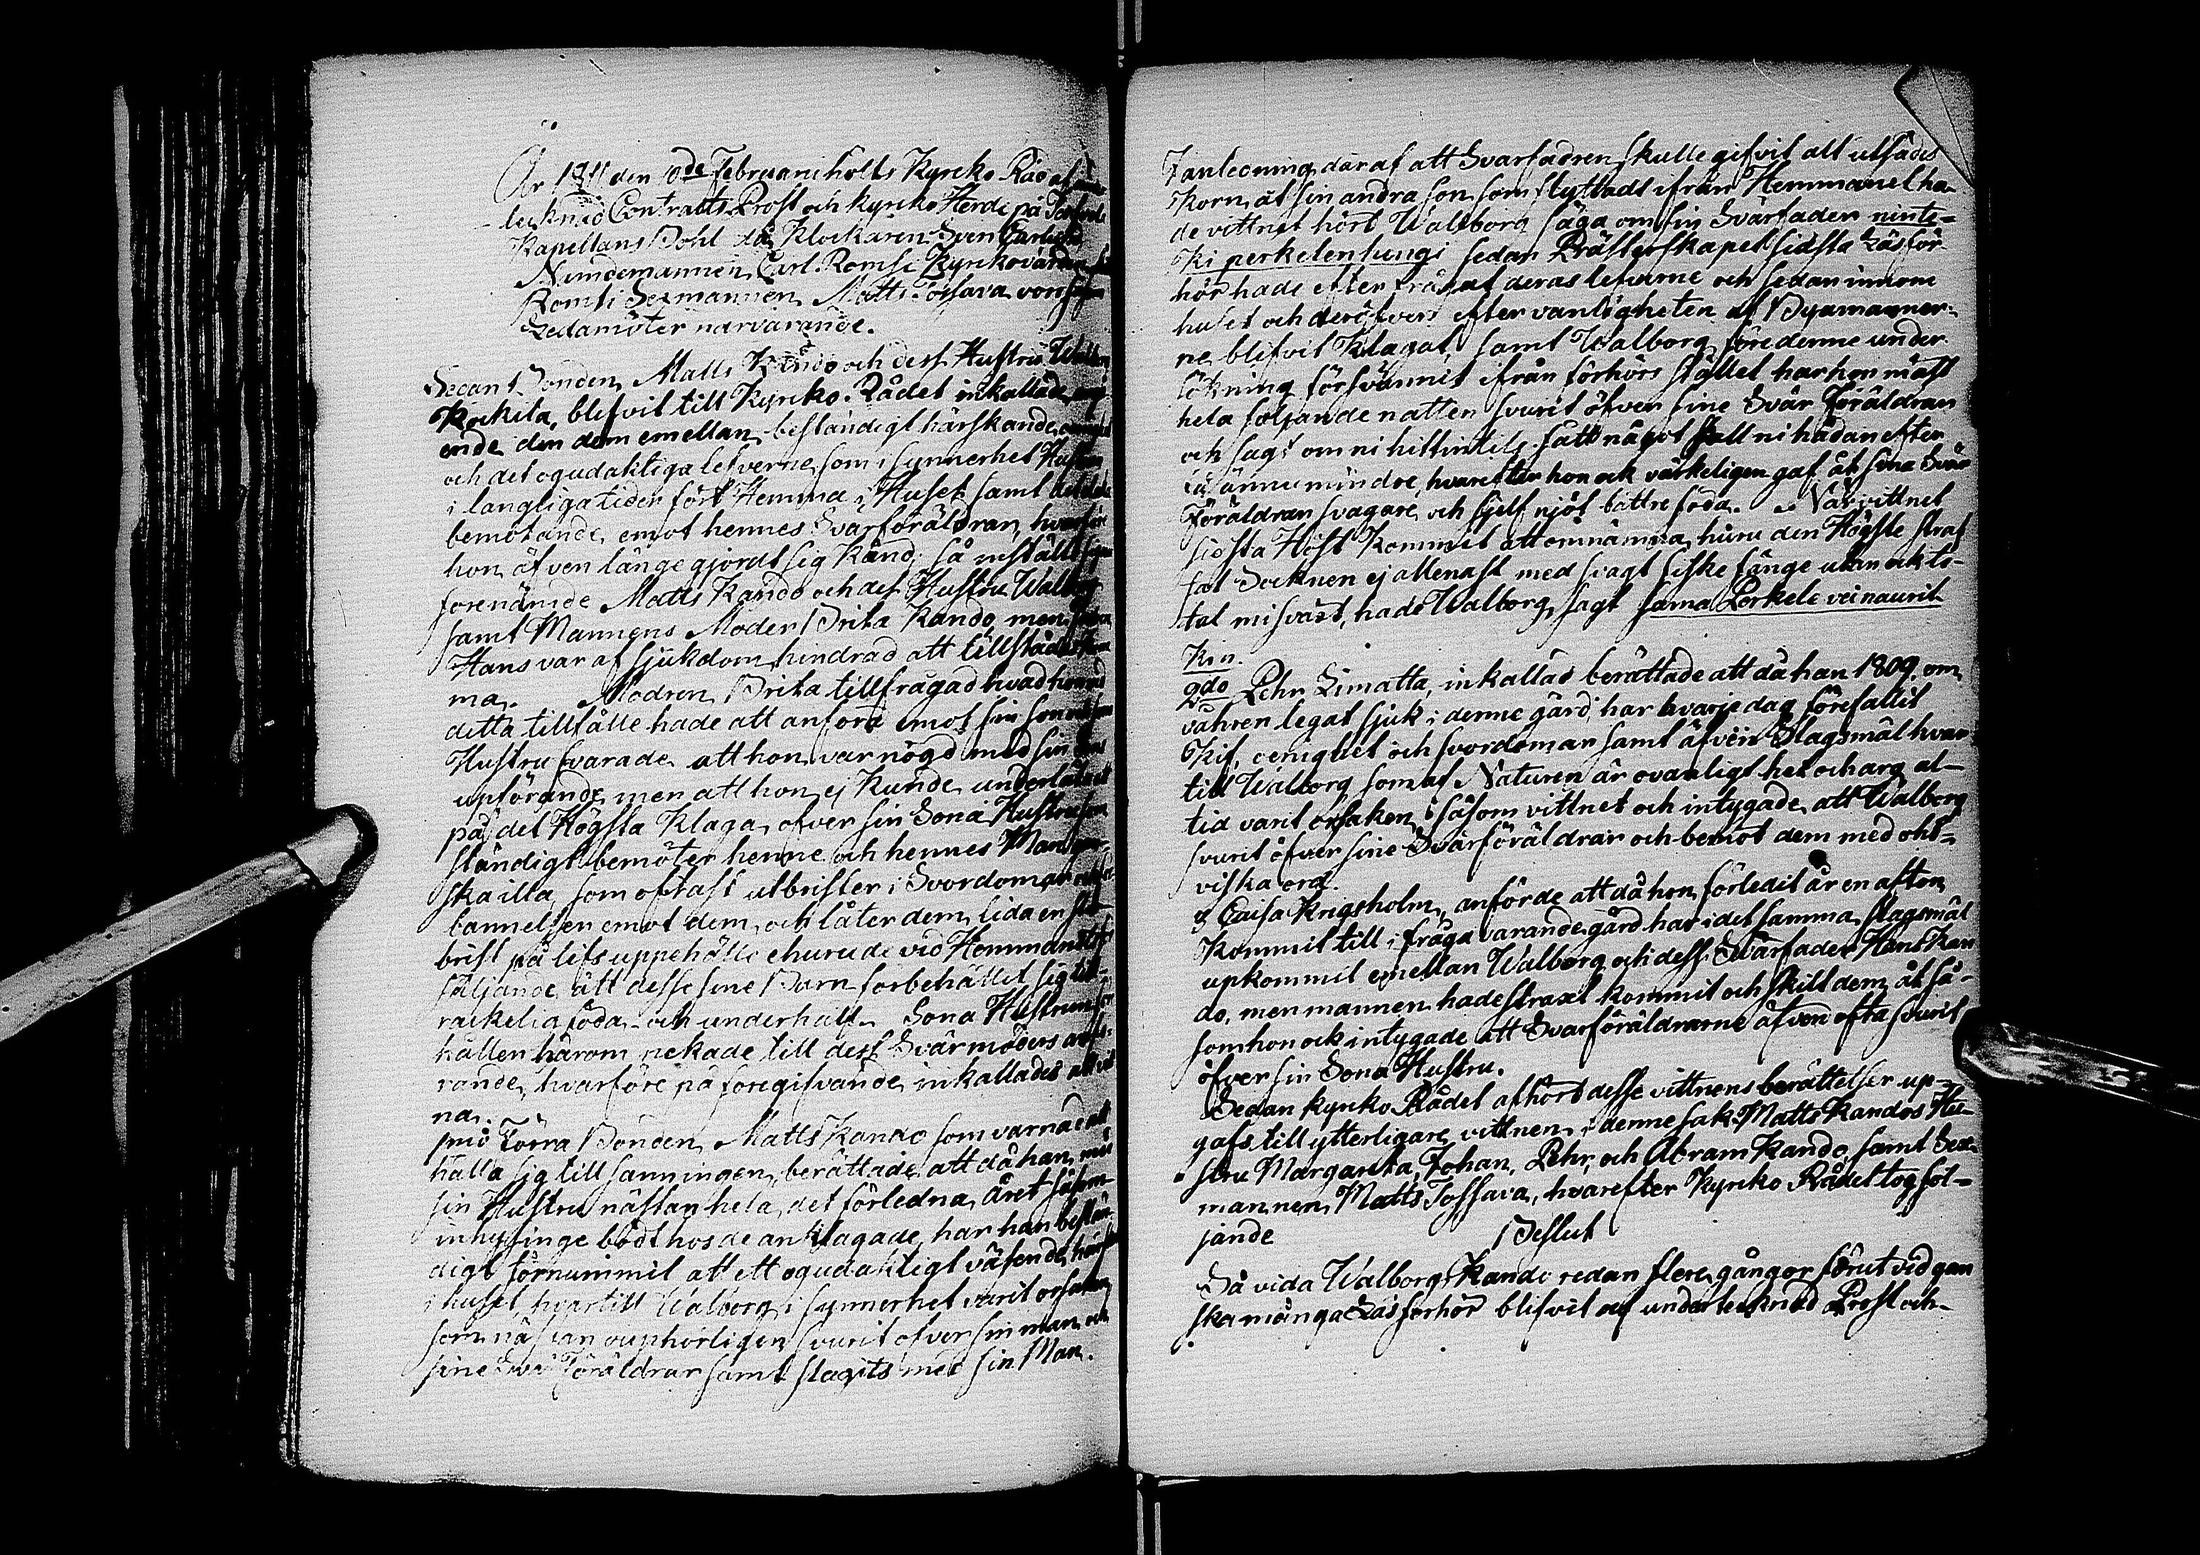 År 1811 den 10de Februari holts Kyrko Råd af
tecknad Contracts Prost och Kyrko Herde på
Kapellans Bohl då Klockaren Sven
Nämdemannen Carl Romsi Kyrkovärden
Romsi Sexmannen Matts Tossava voro
Ledamöter närvarande.
Sedan Bonden Matts Kando och dess Hustru
Rockela, blifvit till Kyrko Rådet inkallade
ende den dem emellan beständigt härskande
och det ogudaktiga lefverne, som i synnerhet
i långliga tider fört Hemma i Huset samt det
bemötande emot hennes Svärföräldrar, hvarföre
hon äfven länge gjordt sig känd; så inställt
förenämde Matts Kando och dess Hustru Walborg
samt Mannens Moder Brita Kando, men
Hans var af sjukdom hindrad att tillstädes
ma. Modren Brita tillfrågad hvad
detta tillfälle hade att anföra emot sin son
Hustru svarade att hon var nögd med sin
upförande, men att hon ej kunde underlåta
på det Högsta klaga öfver sin Sona Hustru
ständigt bemöter henne och hennes Man
ska illa, som oftast utbrister i Svordomar
bannelser emot dem, och låter dem lida en
brist på lifs uppehälle ehuru de vid Hemmanets
säljande åt desse sine Barn förbehållit sig
räckelig föda och underhåll. Sona Hustrun
hållen härom nekade till dess Svärmoders anfö-
rande, hvarföre på föregifvande inkallades
na.
pmo Torra Bonden Matts Kando som varnad att
hålla sig till sanningen, berättade att då han med
sin Hustru nästan hela det förledna Året såsom
inhysinge bodt hos de anklagade, har han bestän-
digt förnummit att ett ogudaktigt väsende
i huset, hvartill Walborg i synnerhet varit orsaken
som nästan ouphörligen svurit öfver sin man och
sine Svär Föräldrar samt slagits med sin Man.
I anledning däraf att Svärfadren skulle gifvit alt utsädes
Korn åt sin andra son, som flyttadt ifrån Hemmanet ha-
de vittnet hört Walborg säga om sin Svärfader ninte-
Ki perkelen hungi sedan Prästerskapet sidsta Läsför-
hör hade efterfrågat deras lefverne och sedan innom
huset och deröfver efter vanligheten af Byamanner-
ne blifvit klagat, samt Walborg före denne under-
sökning försvunnit ifrån förhörs stället har hon mäst
hela följande natten svurit öfver sine Svär Föräldrar
och sagt om ni hittintils fått något skall ni hädanefter
få ännu mindre, hvarefter hon ock värkeligen gaf åt sina Svär
Föräldrar svagare och sjelf njöt bättre föda. När vittnet
sidsta Höst kommet att omnämna huru den Högste straf
fat Socknen ej allenast med svagt fiske fånge utan ock to-
tal misväxt, hade Walborg sagt sama Perkele vei naurit
Kin.
2do Pehr Limatta, inkallad berättade att då han 1809 om
våhren legat sjuk i denne gård, har hvarje dag förefallit
Kif, oenighet och svordomar samt äfven Slagsmål hvar
till Walborg som af Naturen är ovanligt het och arg al-
tid varit orsaken, såsom vittnet och intygade att Walborg
svurit öfver sine Svärföräldrar och bemöt dem med oht-
viska ord.
3 Caisa Krigsholm, anförde att då hon förledit år en afton
kommit till i fråga varande gård har i det samma slagsmål
upkommit emellan Walborg och dess Svärfader Hans Kan
do, men mannen hade straxt kommit och skilt dem åt så-
som hon ock intygade att Svärföräldrarne äfven ofta svurit
öfver sin Sona Hustru.
Sedan Kyrko Rådet afhört desse vittnens berättelser up-
gafs till ytterligare vittnen i denne sak Matts Kandos Hu-
stru Margareta, Johan, Pehr, och Abram Kando, samt Sex-
mannen Matts Tossava, hvarefter Kyrko Rådet tog föl-
jande Beslut
Så vida Walborg Kando redan flere gångor förut vid gan
ska många Läsförhör blifvit af undertecknad Prost och